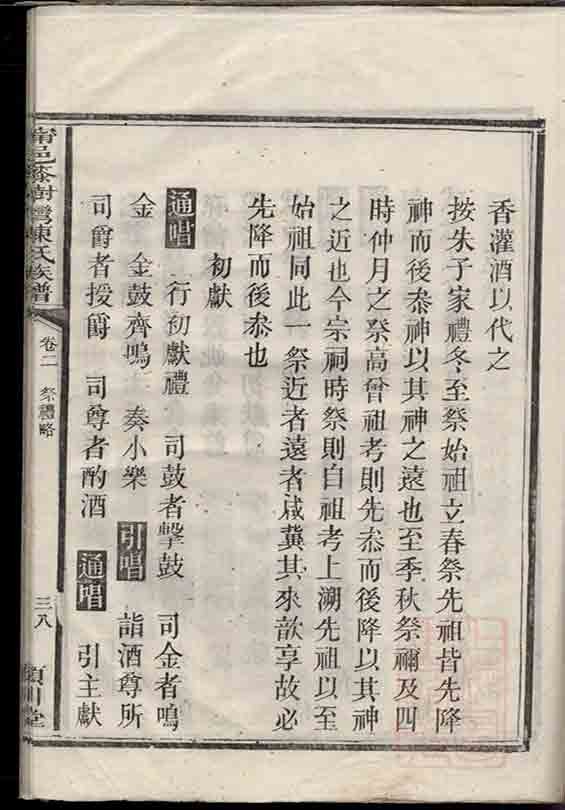 香灌酒以代之
按朱子家禮冬至祭始祖立春祭先祖皆先降
神而後叅神以其神之遠也至季秋祭禰及四
時仲月之祭高曾祖考則先叅而後降以其神
之近也今宗祠時祭則自祖考上溯先祖以至
始祖同此一祭近者遠者咸冀其來歆享故必
先降而後叅也
初獻
通唱 行初獻禮 司鼓者擊鼓 司金者鳴
金 金鼓齊鳴 奏小樂 引唱 詣酒尊所
司爵者授爵 司尊者酌酒 通唱 引主獻
樹灣陳氏族譜 卷二 祭禮略 三八 潁川堂